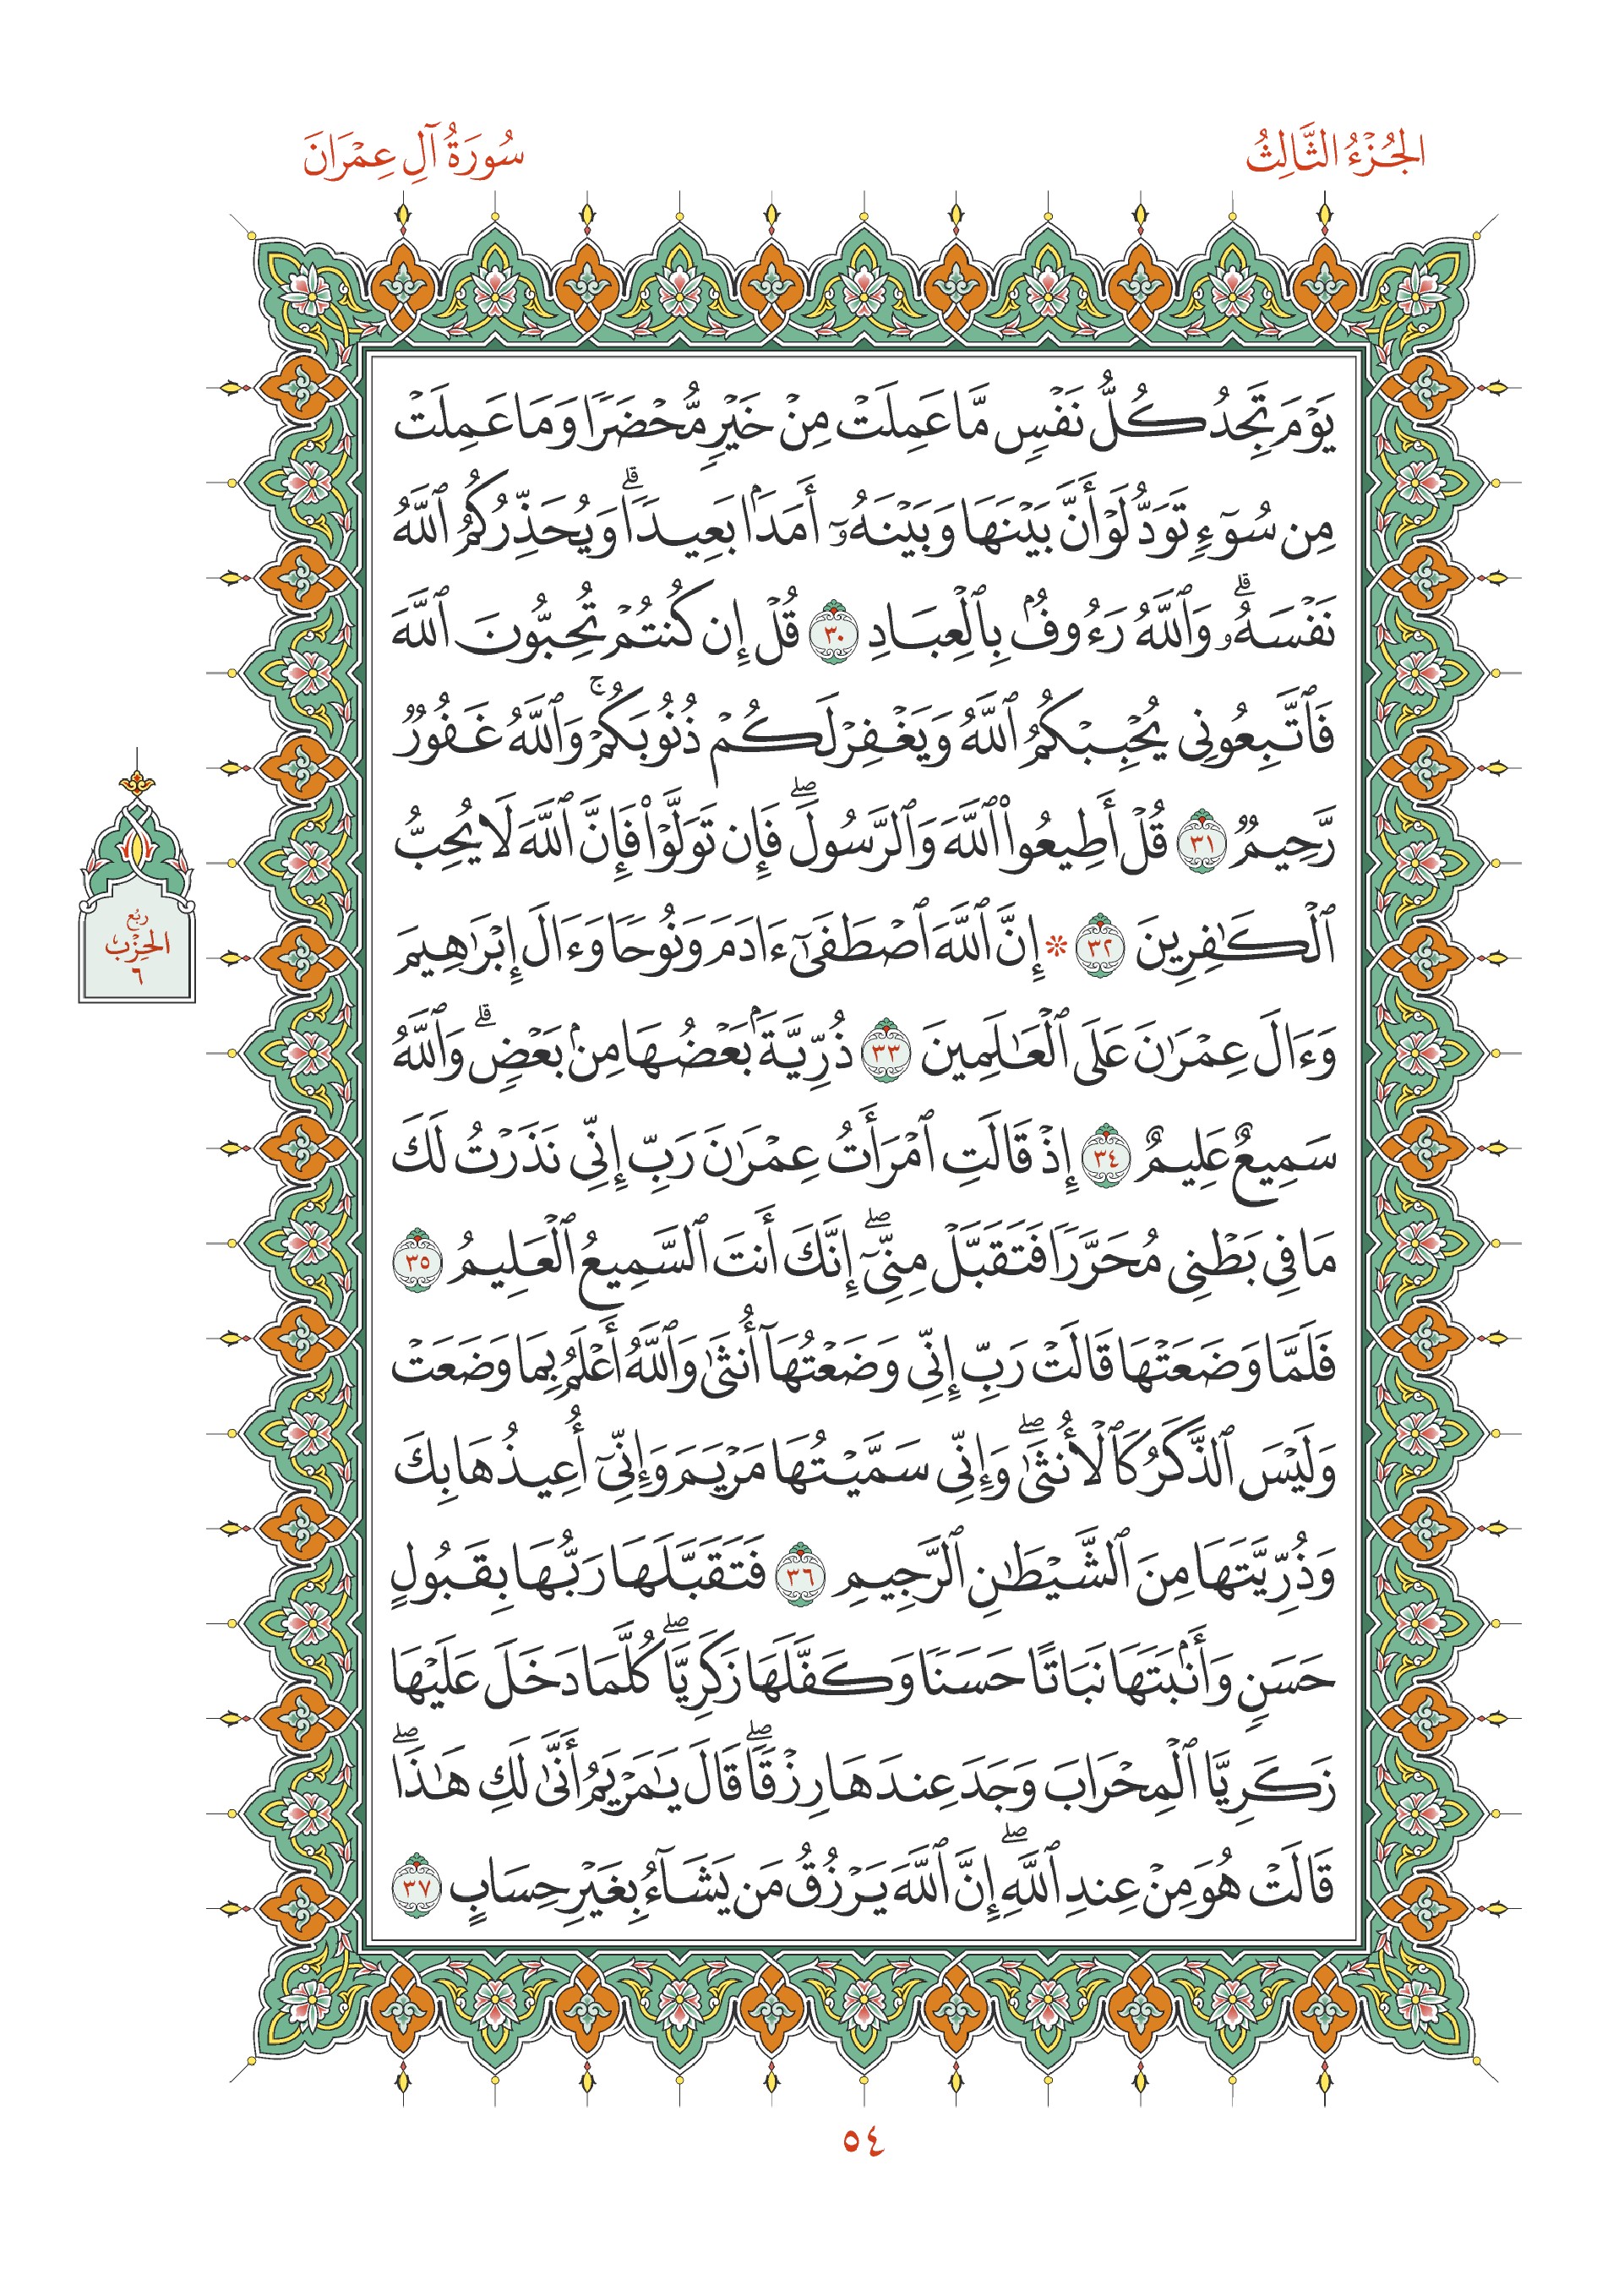 الجُزْءُ الثَّالِثُ
سُورَةُ آلِ عِمْرَانَ
يَوْمَ تَجِدُ كُلُّ نَفْسٖ مَّا عَمِلَتۡ مِنۡ خَيۡرٖ مُّحۡضَرٗا وَمَا عَمِلَتۡ
مِن سُوٓءٖ تَوَدُّ لَوۡ أَنَّ بَيۡنَهَا وَبَيۡنَهُۥٓ أَمَدَۢا بَعِيدٗاۗ وَيُحَذِّرُكُمُ ٱللَّهُ
نَفۡسَهُۥۗ وَٱللَّهُ رَءُوفُۢ بِٱلۡعِبَادِ ٣٠ قُلۡ إِن كُنتُمۡ تُحِبُّونَ ٱللَّهَ
فَٱتَّبِعُونِي يُحۡبِبۡكُمُ ٱللَّهُ وَيَغۡفِرۡ لَكُمۡ ذُنُوبَكُمۡۚ وَٱللَّهُ غَفُورٞ
رَّحِيمٞ ٣١ قُلۡ أَطِيعُواْ ٱللَّهَ وَٱلرَّسُولَۖ فَإِن تَوَلَّوۡاْ فَإِنَّ ٱللَّهَ لَا يُحِبُّ
ٱلۡكَٰفِرِينَ ٣٢ ۞ إِنَّ ٱللَّهَ ٱصۡطَفَىٰٓ ءَادَمَ وَنُوحٗا وَءَالَ إِبۡرَٰهِيمَ
وَءَالَ عِمۡرَٰنَ عَلَى ٱلۡعَٰلَمِينَ ٣٣ ذُرِّيَّةَۢ بَعۡضُهَا مِنۢ بَعۡضٖۗ وَٱللَّهُ
سَمِيعٌ عَلِيمٌ ٣٤ إِذۡ قَالَتِ ٱمۡرَأَتُ عِمۡرَٰنَ رَبِّ إِنِّي نَذَرۡتُ لَكَ
مَا فِي بَطۡنِي مُحَرَّرٗا فَتَقَبَّلۡ مِنِّيٓۖ إِنَّكَ أَنتَ ٱلسَّمِيعُ ٱلۡعَلِيمُ ٣٥
فَلَمَّا وَضَعَتۡهَا قَالَتۡ رَبِّ إِنِّي وَضَعۡتُهَآ أُنثَىٰ وَٱللَّهُ أَعۡلَمُ بِمَا وَضَعَتۡ
وَلَيۡسَ ٱلذَّكَرُ كَٱلۡأُنثَىٰۖ وَإِنِّي سَمَّيۡتُهَا مَرۡيَمَ وَإِنِّيٓ أُعِيذُهَا بِكَ
وَذُرِّيَّتَهَا مِنَ ٱلشَّيۡطَٰنِ ٱلرَّجِيمِ ٣٦ فَتَقَبَّلَهَا رَبُّهَا بِقَبُولٍ
حَسَنٖ وَأَنۢبَتَهَا نَبَاتًا حَسَنٗا وَكَفَّلَهَا زَكَرِيَّاۖ كُلَّمَا دَخَلَ عَلَيۡهَا
زَكَرِيَّا ٱلۡمِحۡرَابَ وَجَدَ عِندَهَا رِزۡقٗاۖ قَالَ يَٰمَرۡيَمُ أَنَّىٰ لَكِ هَٰذَاۖ
قَالَتۡ هُوَ مِنۡ عِندِ ٱللَّهِۖ إِنَّ ٱللَّهَ يَرۡزُقُ مَن يَشَآءُ بِغَيۡرِ حِسَابٍ ٣٧
ربع
الحزب
٦
٥٤